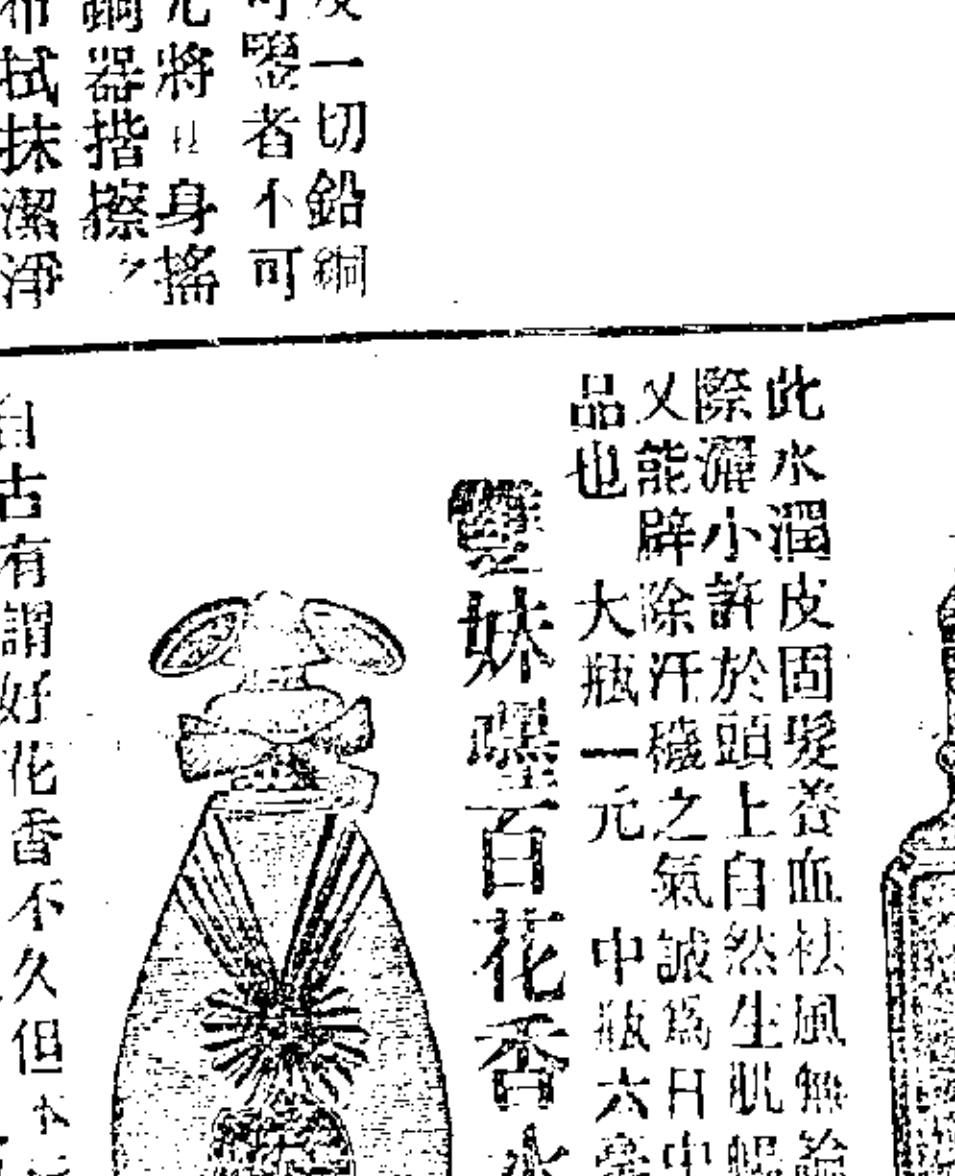 一切鉛銅
者不可
將 身搖
器揩擦
拭抹潔淨
此水潤皮固髮養血祛風無論
際灑小許於頭上自然生肌
又能辟除汗穢之氣誠爲日中
品也 大瓶一元 中瓶六毫
妹嘿百花香水
自古有謂好花香不久但